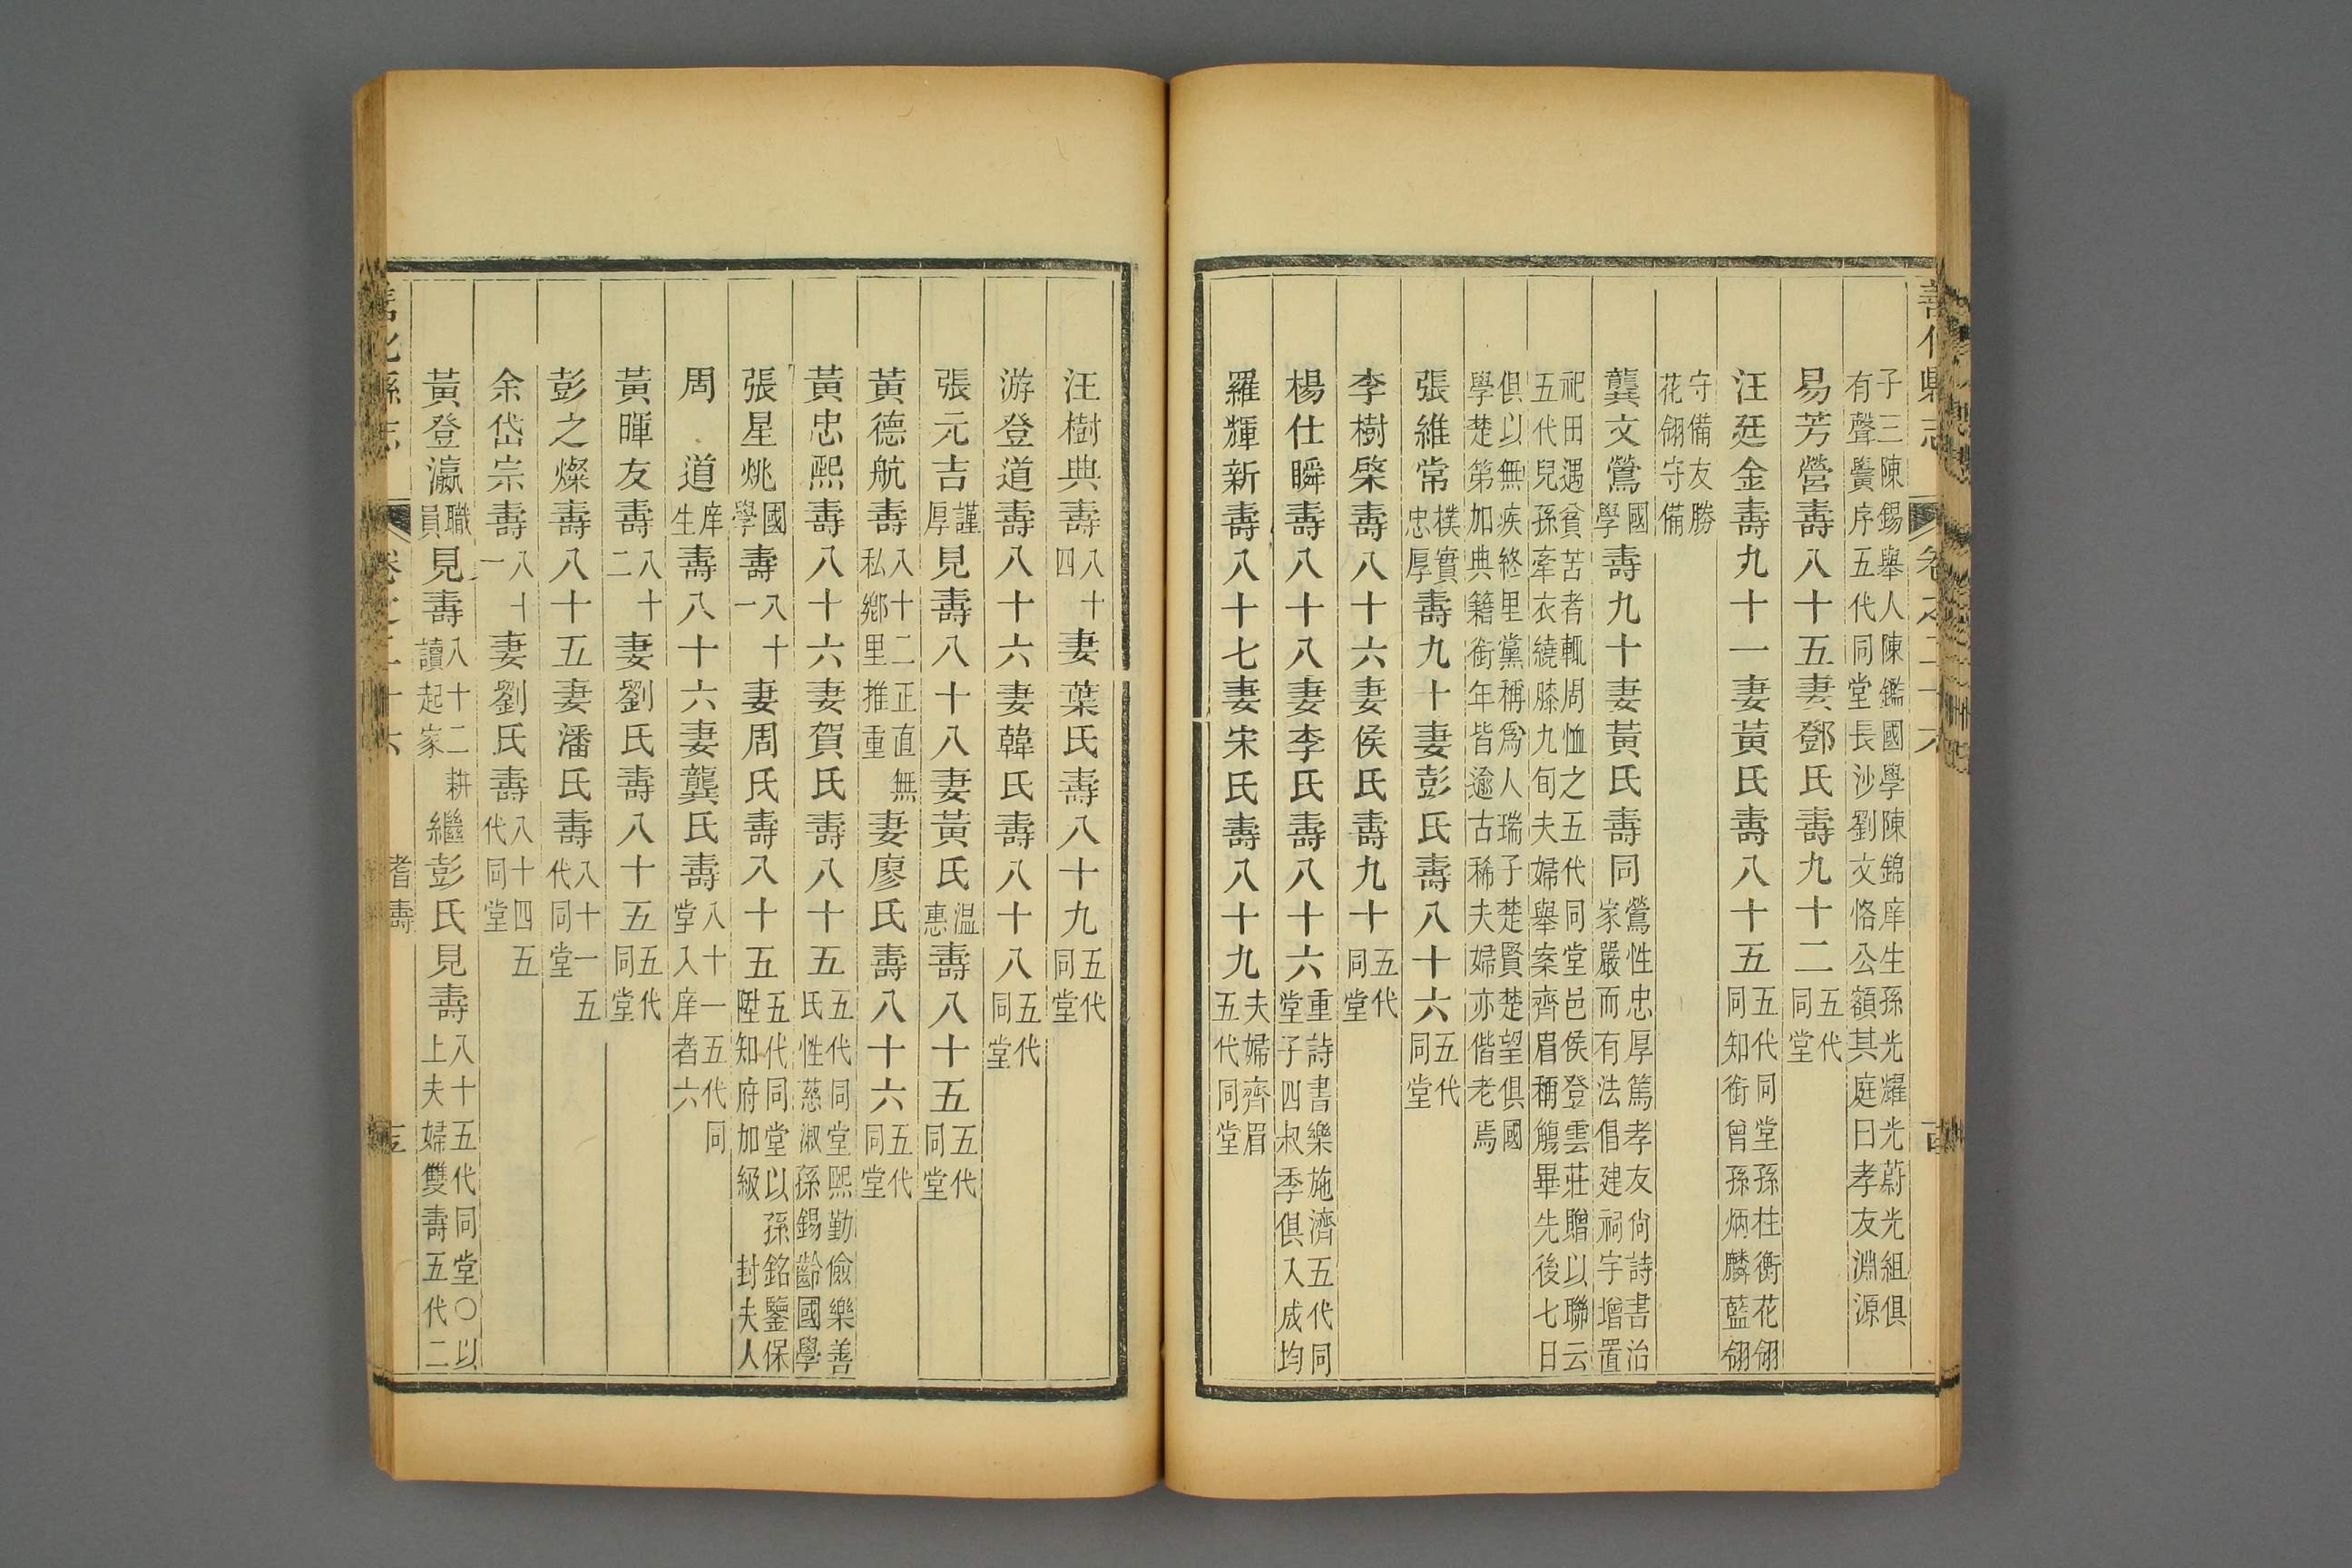 善化縣志 卷之二十六
子三陳錫舉人陳鑑國學陳錦庠生孫光耀光蔚光組俱
有聲黌序五代同堂長沙劉文恪公額其庭曰孝友淵源
易芳營壽八十五妻鄧氏壽九十二五代同堂
汪廷金壽九十一妻黃氏壽八十五五代同堂孫孫柱衡花翎
同知銜曾孫炳麟藍翎
守備友勝
花翎守備
龔文鶯國學壽九十妻黃氏壽同鶯性忠厚篤孝友尙詩書治
家嚴而有法倡建祠宇增置
祀田遇貧苦者輒周恤之五代同堂邑侯登雲莊贈以聯云
五代兒孫牽衣繞膝九旬夫婦舉案齊眉稱觴畢先後七日
俱以無疾終里黨稱爲人瑞子楚賢楚望俱國
學楚第加典籍銜年皆逾古稀夫婦亦偕老焉
張維常樸實忠厚壽九十妻彭氏壽八十六五代同堂
李樹棨壽八十六妻侯氏壽九十五代同堂
楊仕瞬壽八十八妻李氏壽八十六重詩書樂施濟五代同
堂子四叔季俱入成均
羅輝新壽八十七妻宋氏壽八十九夫婦齊眉五代同堂
汪樹典壽八十四妻葉氏壽八十九五代同堂
游登道壽八十六妻韓氏壽八十八五代同堂
張元吉謹厚見壽八十八妻黃氏温惠壽八十五五代同堂
黃德航壽八十二正直無私鄉里推重妻廖氏壽八十六五代同堂
黃忠熙壽八十六妻賀氏壽八十五五代同堂熙勤儉樂善
氏性慈淑孫錫齡國學
張星烑國學壽八十一妻周氏壽八十五五代同堂以孫銘鑒保
陞知府加級封夫人
周道庠生壽八十六妻龔氏壽八十一五代同
堂入庠者六
黃暉友壽八十二妻劉氏壽八十五五代同堂
彭之燦壽八十五妻潘氏壽八十一五代同堂
余岱宗壽八十一妻劉氏壽八十四五代同堂
黃登瀛職員見壽八十二耕讀起家繼彭氏見壽八十五五代同堂〇以
上夫婦雙壽五代二
善化縣志 卷之二十六 耆壽